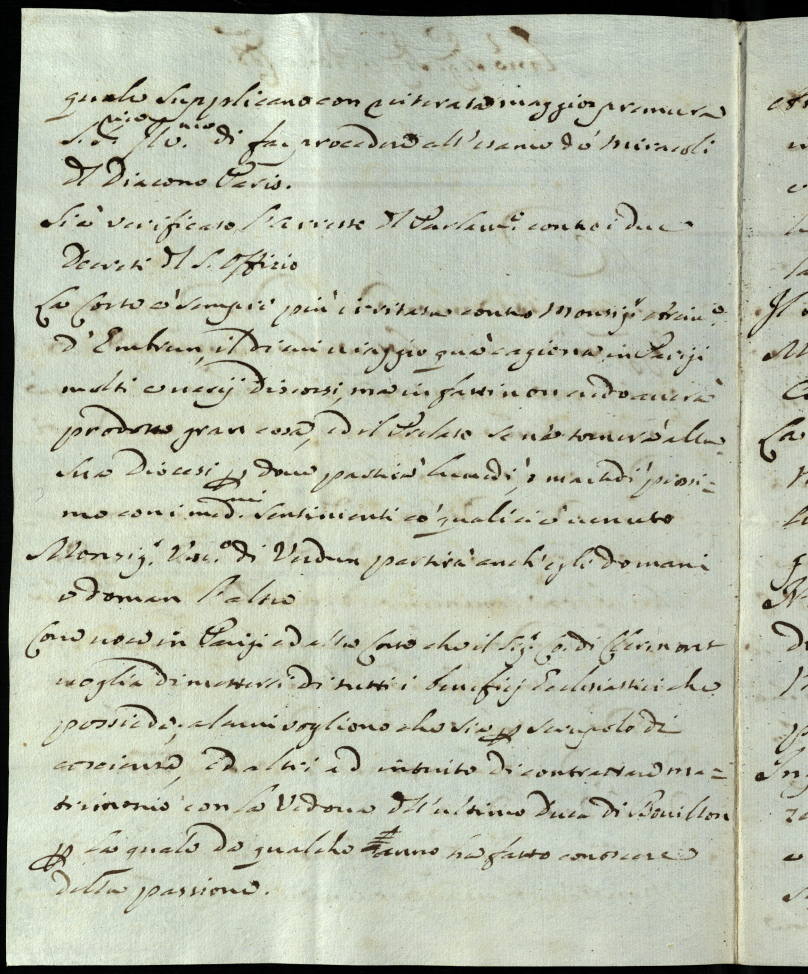 quale supplicano con reiterata maggior premura
di far procedere all'esame de' Miracoli
del Diacono Paris.
Si è verificato l'arresto del Parlam.to contro i due
Decreti del S. Offizio
La Corte è sempre più irritata contro Monsig.r Arciv.o
d'Embrun, il di cui viaggio quà cagiona in Parigi
molti e varij discorsi, ma in fatti non credo averà
prodotto gran cosa, ed il Prelato se ne tornerà alla
sua Diocesi p dove partirà lunedì, o martedì prossi=
mo con i med.mi sentimenti co' quali ci è venuto
Monsig.r Vesc.o di Verdun partirà anch'egli domani
o doman l'altro
Corre voce in Parigi ed alla Corte che il Sig.r Co: di Clermont
voglia dimettersi di tutti i beneficj Ecclesiastici che
possiede, alcuni vogliono che sia p scrupolo di
coscienza, ed altri ad intuito di contrattare ma=
trimonio con la Vedova dell'ultimo Duca di Bouillon
p la quale da qualche anno hà fatto conoscere
della passione.